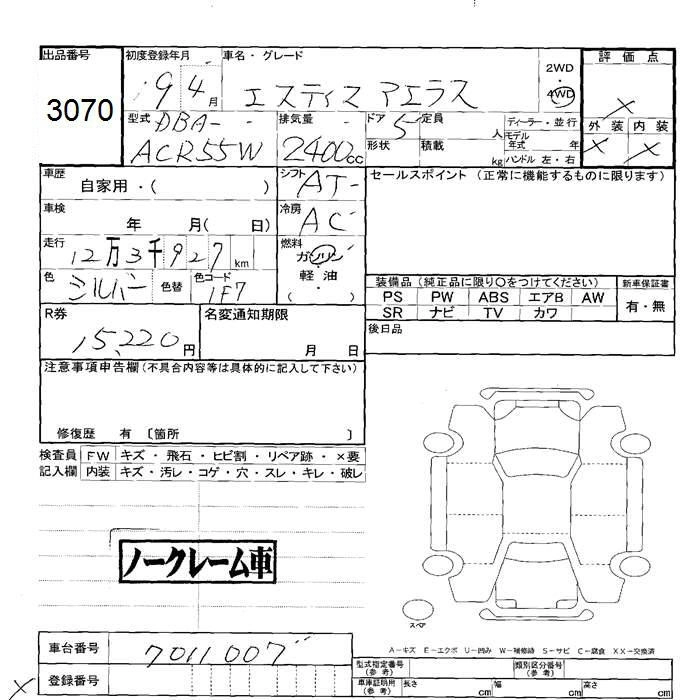 出品番号
3070
初度登録年月
19 4 月
車名・グレード
エスティマ アエラス
2WD
・
4WD
評価点
X
外装 内装
X X
型式
DBA-
ACR55W
排気量
2400 cc
ドア 5 定員 人
形状 積載 kg
ディーラー・並行
モデル年式 年
ハンドル 左・右
車歴
自家用・( )
シフト AT
セールスポイント (正常に機能するものに限ります)
車検
年 月( 日)
冷房 AC
走行
12万3千927 km
燃料
ガソリン
軽油
( ・ )
色 シルバー 色替 色コード 1F7
装備品 (純正品に限り〇をつけてください)
新車保証書
PS PW ABS エアB AW
SR ナビ TV カワ
有・無
R券
15,220 円
名変通知期限
月 日
後日品
注意事項申告欄 (不具合内容等は具体的に記入して下さい)
修復歴 有 〔箇所 〕
検査員 FW キズ・飛石・ヒビ割・リペア跡・×要
記入欄 内装 キズ・汚レ・コゲ・穴・スレ・キレ・破レ
ノークレーム車
スペア
A-キズ E-エクボ U-凹み W-補修跡 S-サビ C-腐食 XX-交換済
車台番号 7011007
登録番号
型式指定番号 (参考)
類別区分番号 (参考)
車庫証明用 (参考) 長さ cm 幅 cm 高さ cm
X